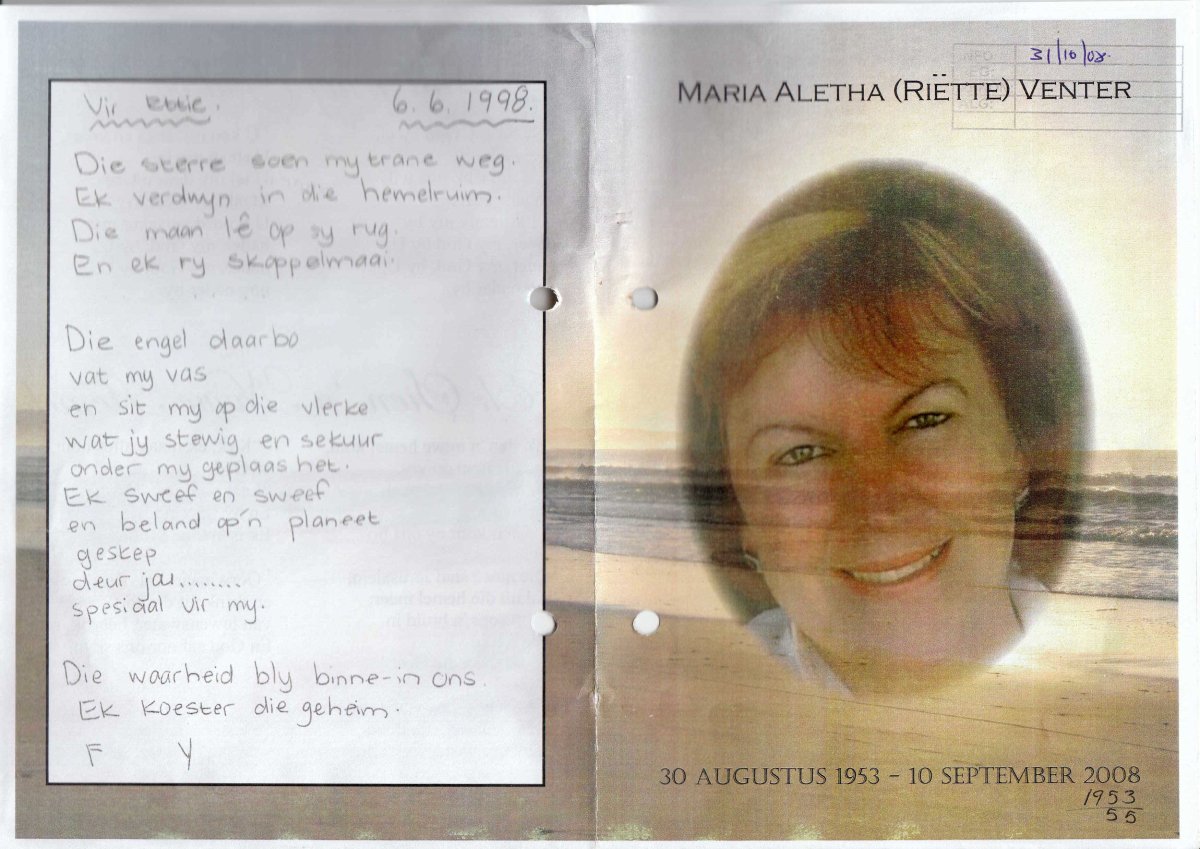 Vir Ettie. 6.6.1998.
Die sterre soen my trane weg.
Ek verdwyn in die hemelruim.
Die maan lê op sy rug.
En ek ry skoppelmaai.
Die engel daarbo
vat my vas
en sit my op die vlerke
wat jy stewig en sekuur
onder my geplaas het.
Ek sweef en sweef
en beland op 'n planeet
geskep
deur jou........
spesiaal vir my.
Die waarheid bly binne-in ons.
Ek koester die geheim.
F Y
31/10/08.
MARIA ALETHA (RIËTTE) VENTER
30 AUGUSTUS 1953 – 10 SEPTEMBER 2008
1953
55